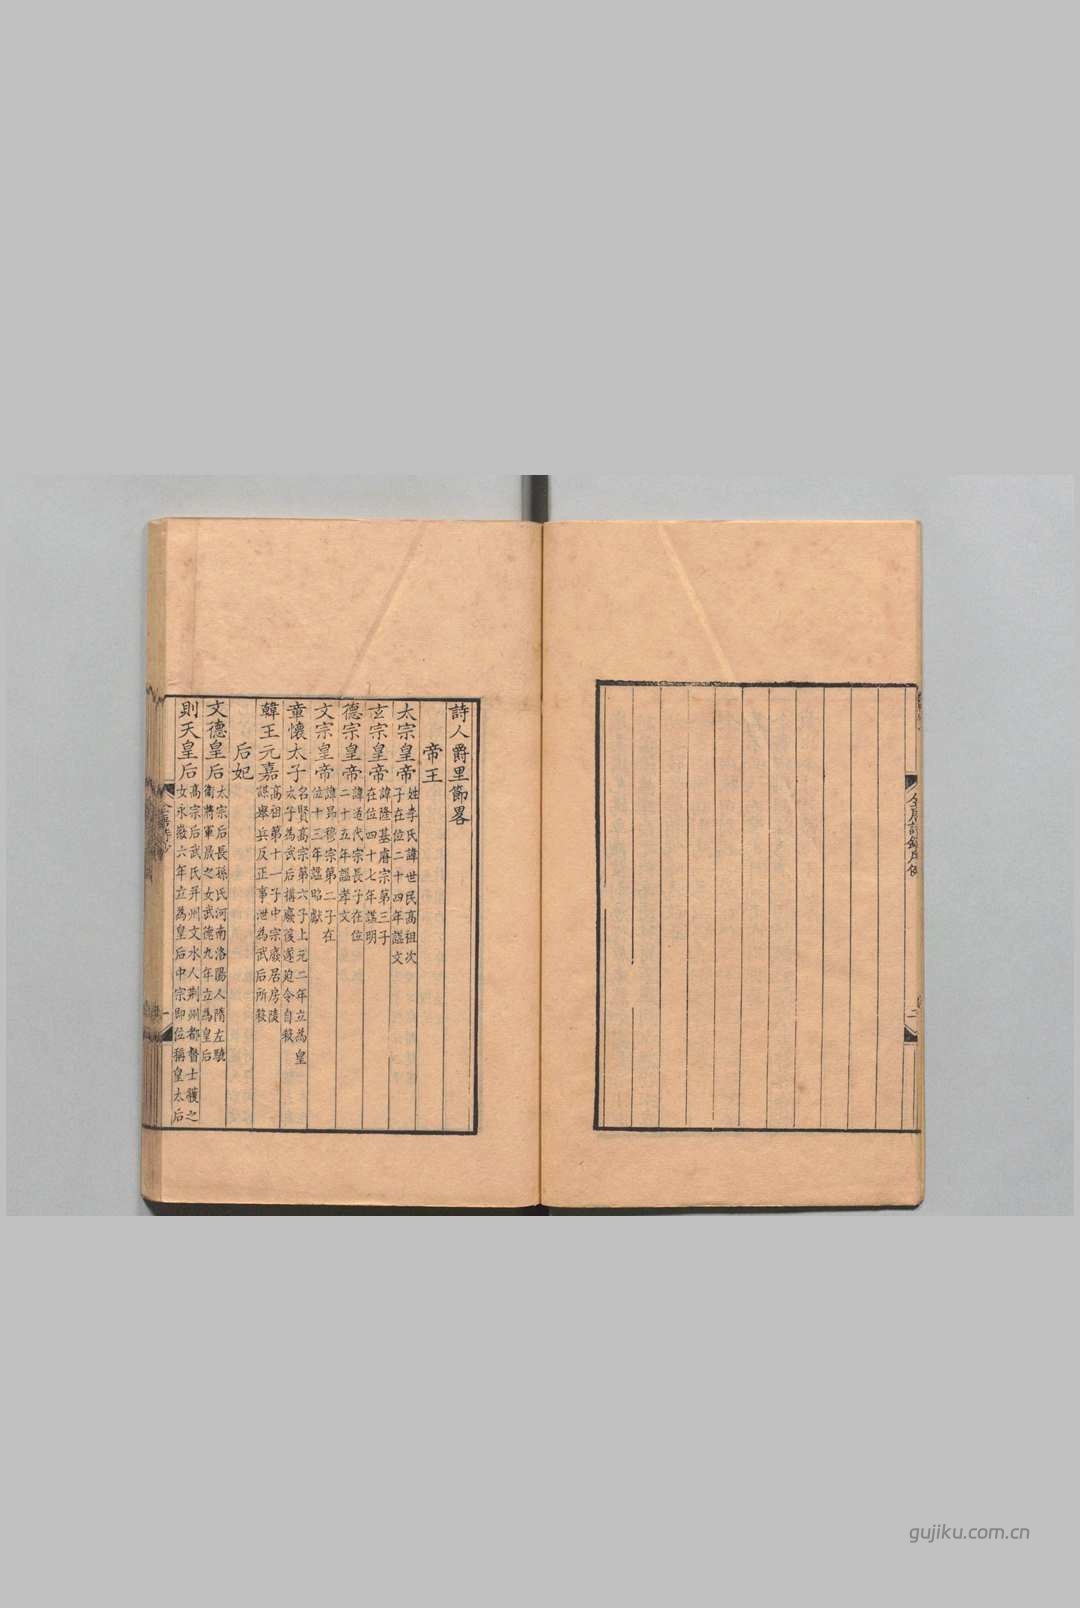 詩人爵里節畧
帝王
太宗皇帝 姓李氏諱世民高祖次子在位二十四年諡文
玄宗皇帝 諱隆基睿宗第三子在位四十七年諡明
德宗皇帝 諱适代宗長子在位二十五年諡孝文
文宗皇帝 諱昂穆宗第二子在位十三年諡昭獻
章懷太子 名賢高宗第六子上元二年立為皇太子為武后搆廢後遂迫令自殺
韓王元嘉 高祖第十一子中宗廢居房陵謀舉兵反正事泄為武后所殺
后妃
文德皇后 太宗后長孫氏河南洛陽人隋左驍衛將軍晟之女武德九年立為皇后
則天皇后 高宗后武氏并州文水人荆州都督士彠之女永徽六年立為皇后中宗即位稱皇太后
全唐詩
一
二
gujiku.com.cn